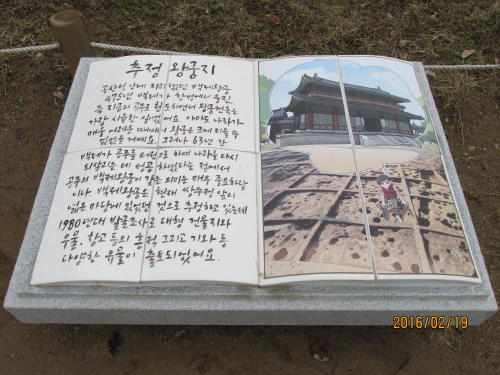 추정 왕궁지
공산성 안에 자리했던 백제왕궁
475년 백제가 한성에서 웅진
즉 지금의 공주로 천도하면서 왕궁건축은
가장 시급한 일이었어요. 아마도 나라가
매우 어려울 때여서 왕궁은 크게 지을 수
없었을 거예요. 그러나 63년 간
백제가 공주를 터전으로 하여 나라를 다시
되살리는 데 성공하였다는 점에서
공주의 백제왕궁이 갖는 의미는 매우 중요하답
니다. 백제왕궁은 현재 쌍수정 앞의
넓은 마당에 있었던 것으로 추정하고 있는데
1980년대 발굴조사로 대형 건물지와
우물, 창고 등의 흔적 그리고 기와 등
다양한 유물이 출토되었어요.
2016/02/19